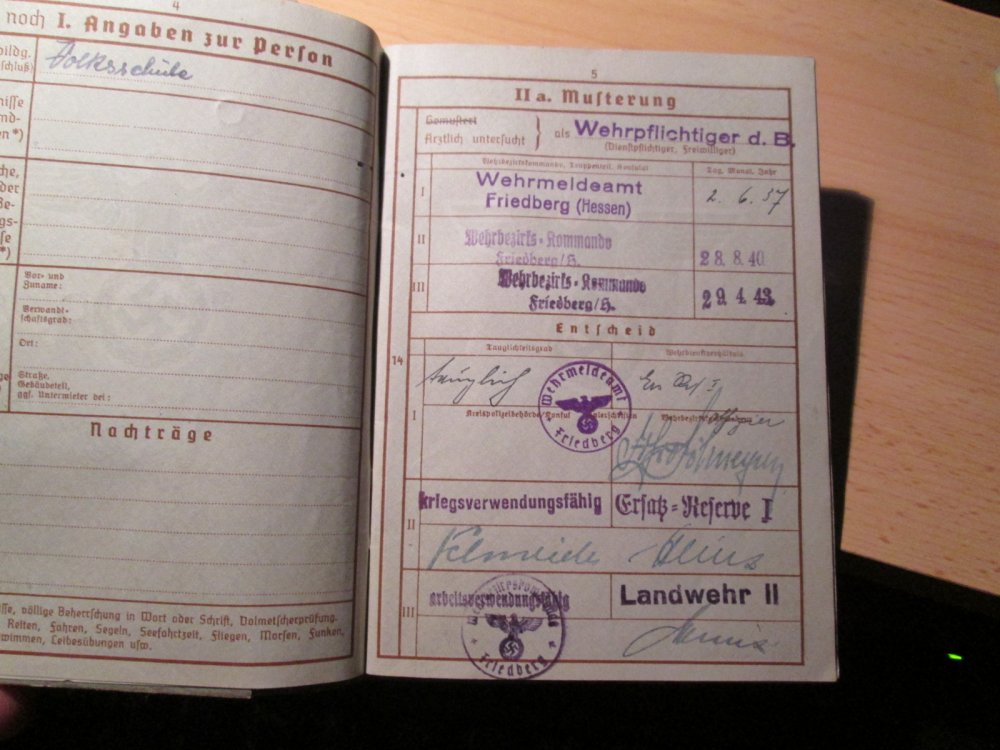 4
noch I. Angaben zur Person
bildg.
schluß)
Volksschule
nisse
nd-
en*)
che,
der
Be-
gs-
se
*)
Vor- und
Zuname:
Verwandt-
schaftsgrad:
Ort:
Straße,
Gebäudeteil,
ggf. Untermieter bei:
Nachträge
sse, völlige Beherrschung in Wort oder Schrift, Dolmetscherprüfung.
Reiten, Fahren, Segeln, Seefahrtzeit, Fliegen, Morsen, Funken,
wimmen, Leibesübungen usw.
5
IIa. Musterung
Gemustert
Ärztlich untersucht } als Wehrpflichtiger d. B.
(Dienstpflichtiger, Freiwilliger)
Wehrbezirkskommando, Truppenteil, Konsulat
Tag, Monat, Jahr
I
Wehrmeldeamt
Friedberg (Hessen)
2. 6. 37
II
Wehrbezirks-Kommando
Friedberg/H.
28. 8. 40
III
Wehrbezirks-Kommando
Friedberg/H.
29. 4. 43
Entscheid
14
Tauglichkeitsgrad
Wehrdienstverhältnis
I
tauglich
Ers. Res. I
Wehrmeldeamt
Friedberg
Kreispolizeibehörde/Konsul
Offizier
II
kriegsverwendungsfähig
Ersatz-Reserve I
III
arbeitsverwendungsfähig
Landwehr II
Wehrbezirkskommando
Friedberg